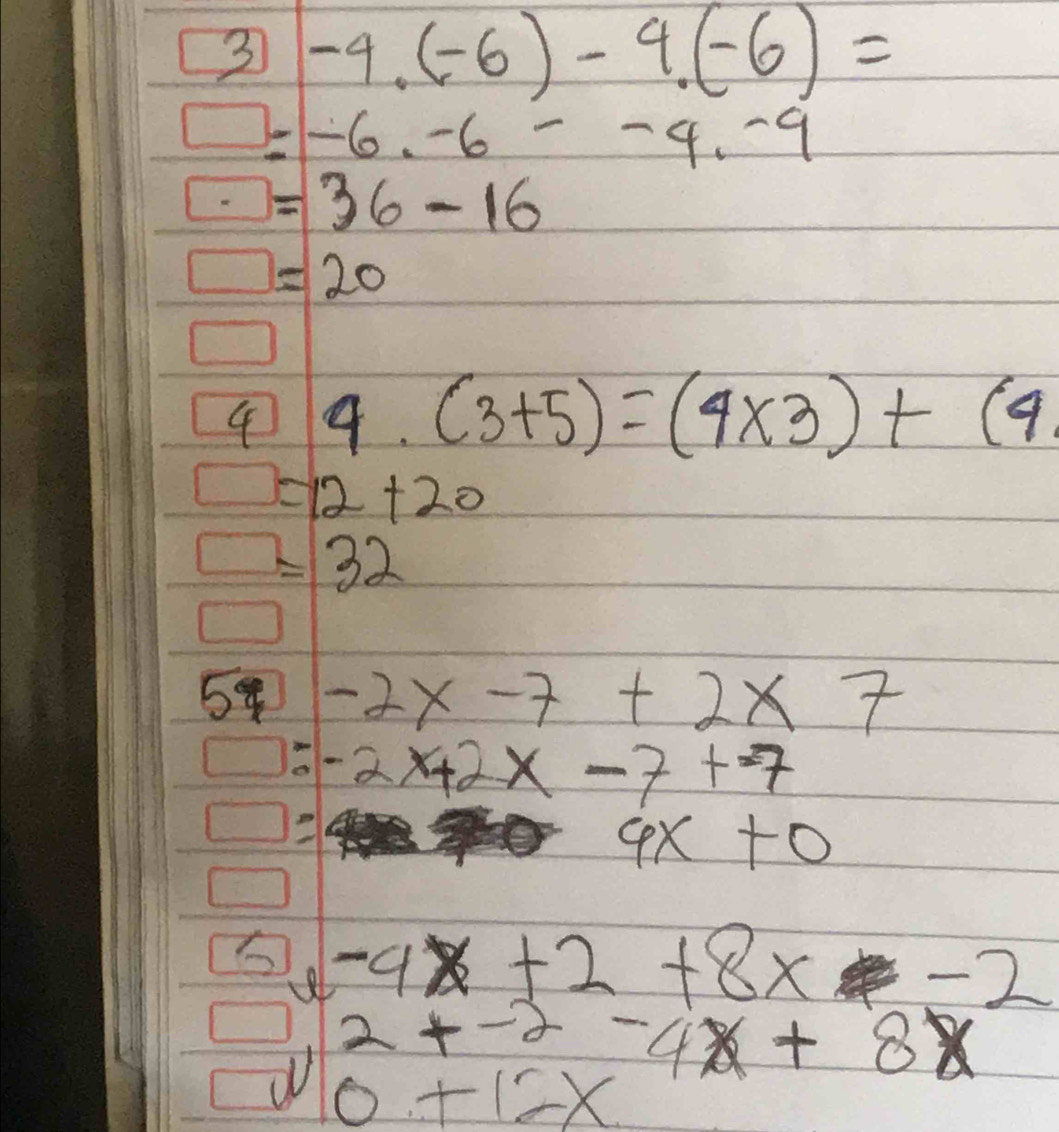 3 -4.(-6) - 4.(-6) =
= -6.-6 - -4.-4
= 36 - 16
= 20
4 4 . (3+5) = (4x3) + (4.
= 12 + 20
= 32
5 -2x -7 + 2x 7
= -2x+2x -7 +-7
= 4x + 0
5 -4x +2 +8x -2
2 + -2 -4x + 8x
0 + 12x